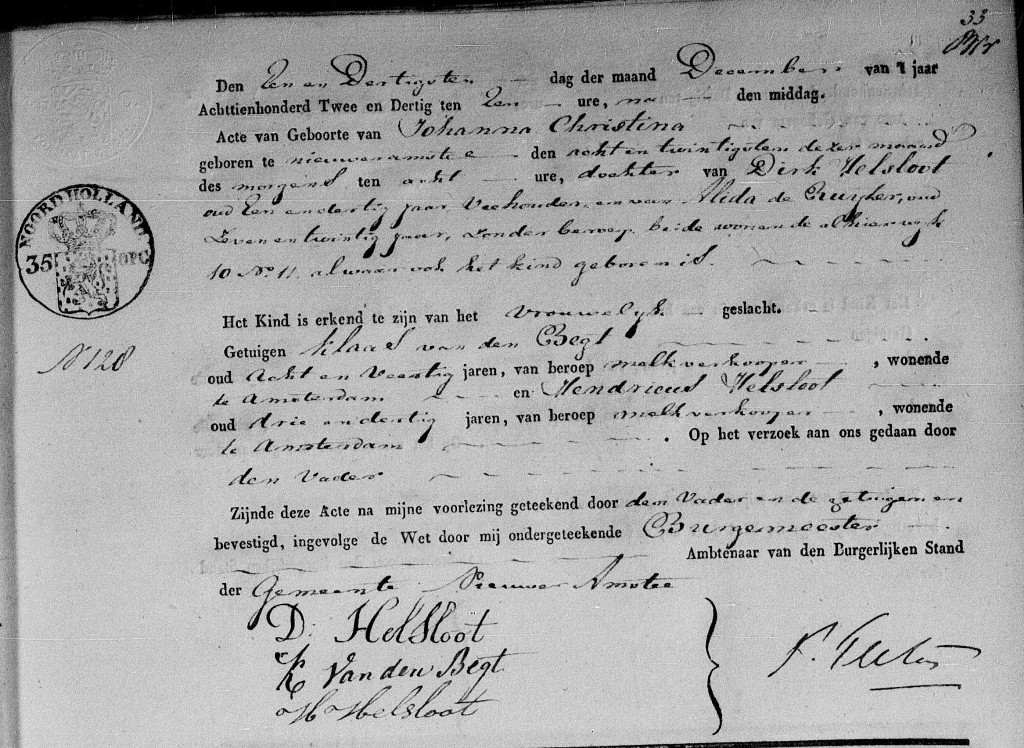 33
Den Een en Dertigsten dag der maand December van 't jaar
Achttienhonderd Twee en Dertig ten Een ure, na den middag.
Acte van Geboorte van Johanna Christina
geboren te nieuweramstee den acht en twintigsten dezer maand
des morgens ten acht ure, dochter van Dirk Helsloot
oud Een en dertig jaar Veehouder, en van Alida de Ruyter, oud
Zeven en twintig jaar, zonder beroep beide wonende alhier wyk
10 No 11. alwaar ook het kind geboren is.
NOORD HOLLAND
35 OPC
Het Kind is erkend te zijn van het vrouwelyk geslacht.
N 128
Getuigen Klaas van den Begt
oud acht en Veertig jaren, van beroep melkverkooper, wonende
te Amsterdam en Hendricus Helsloot
oud drie en dertig jaren, van beroep melkverkooper, wonende
te Amsterdam. Op het verzoek aan ons gedaan door
den Vader
Zijnde deze Acte na mijne voorlezing geteekend door dem Vader en de getuigen en
bevestigd, ingevolge de Wet door mij ondergeteekende Burgemeester
Ambtenaar van den Burgerlijken Stand
der Gemeente Nieuwer Amstee
D. Helsloot
K Van den Begt
H Helsloot